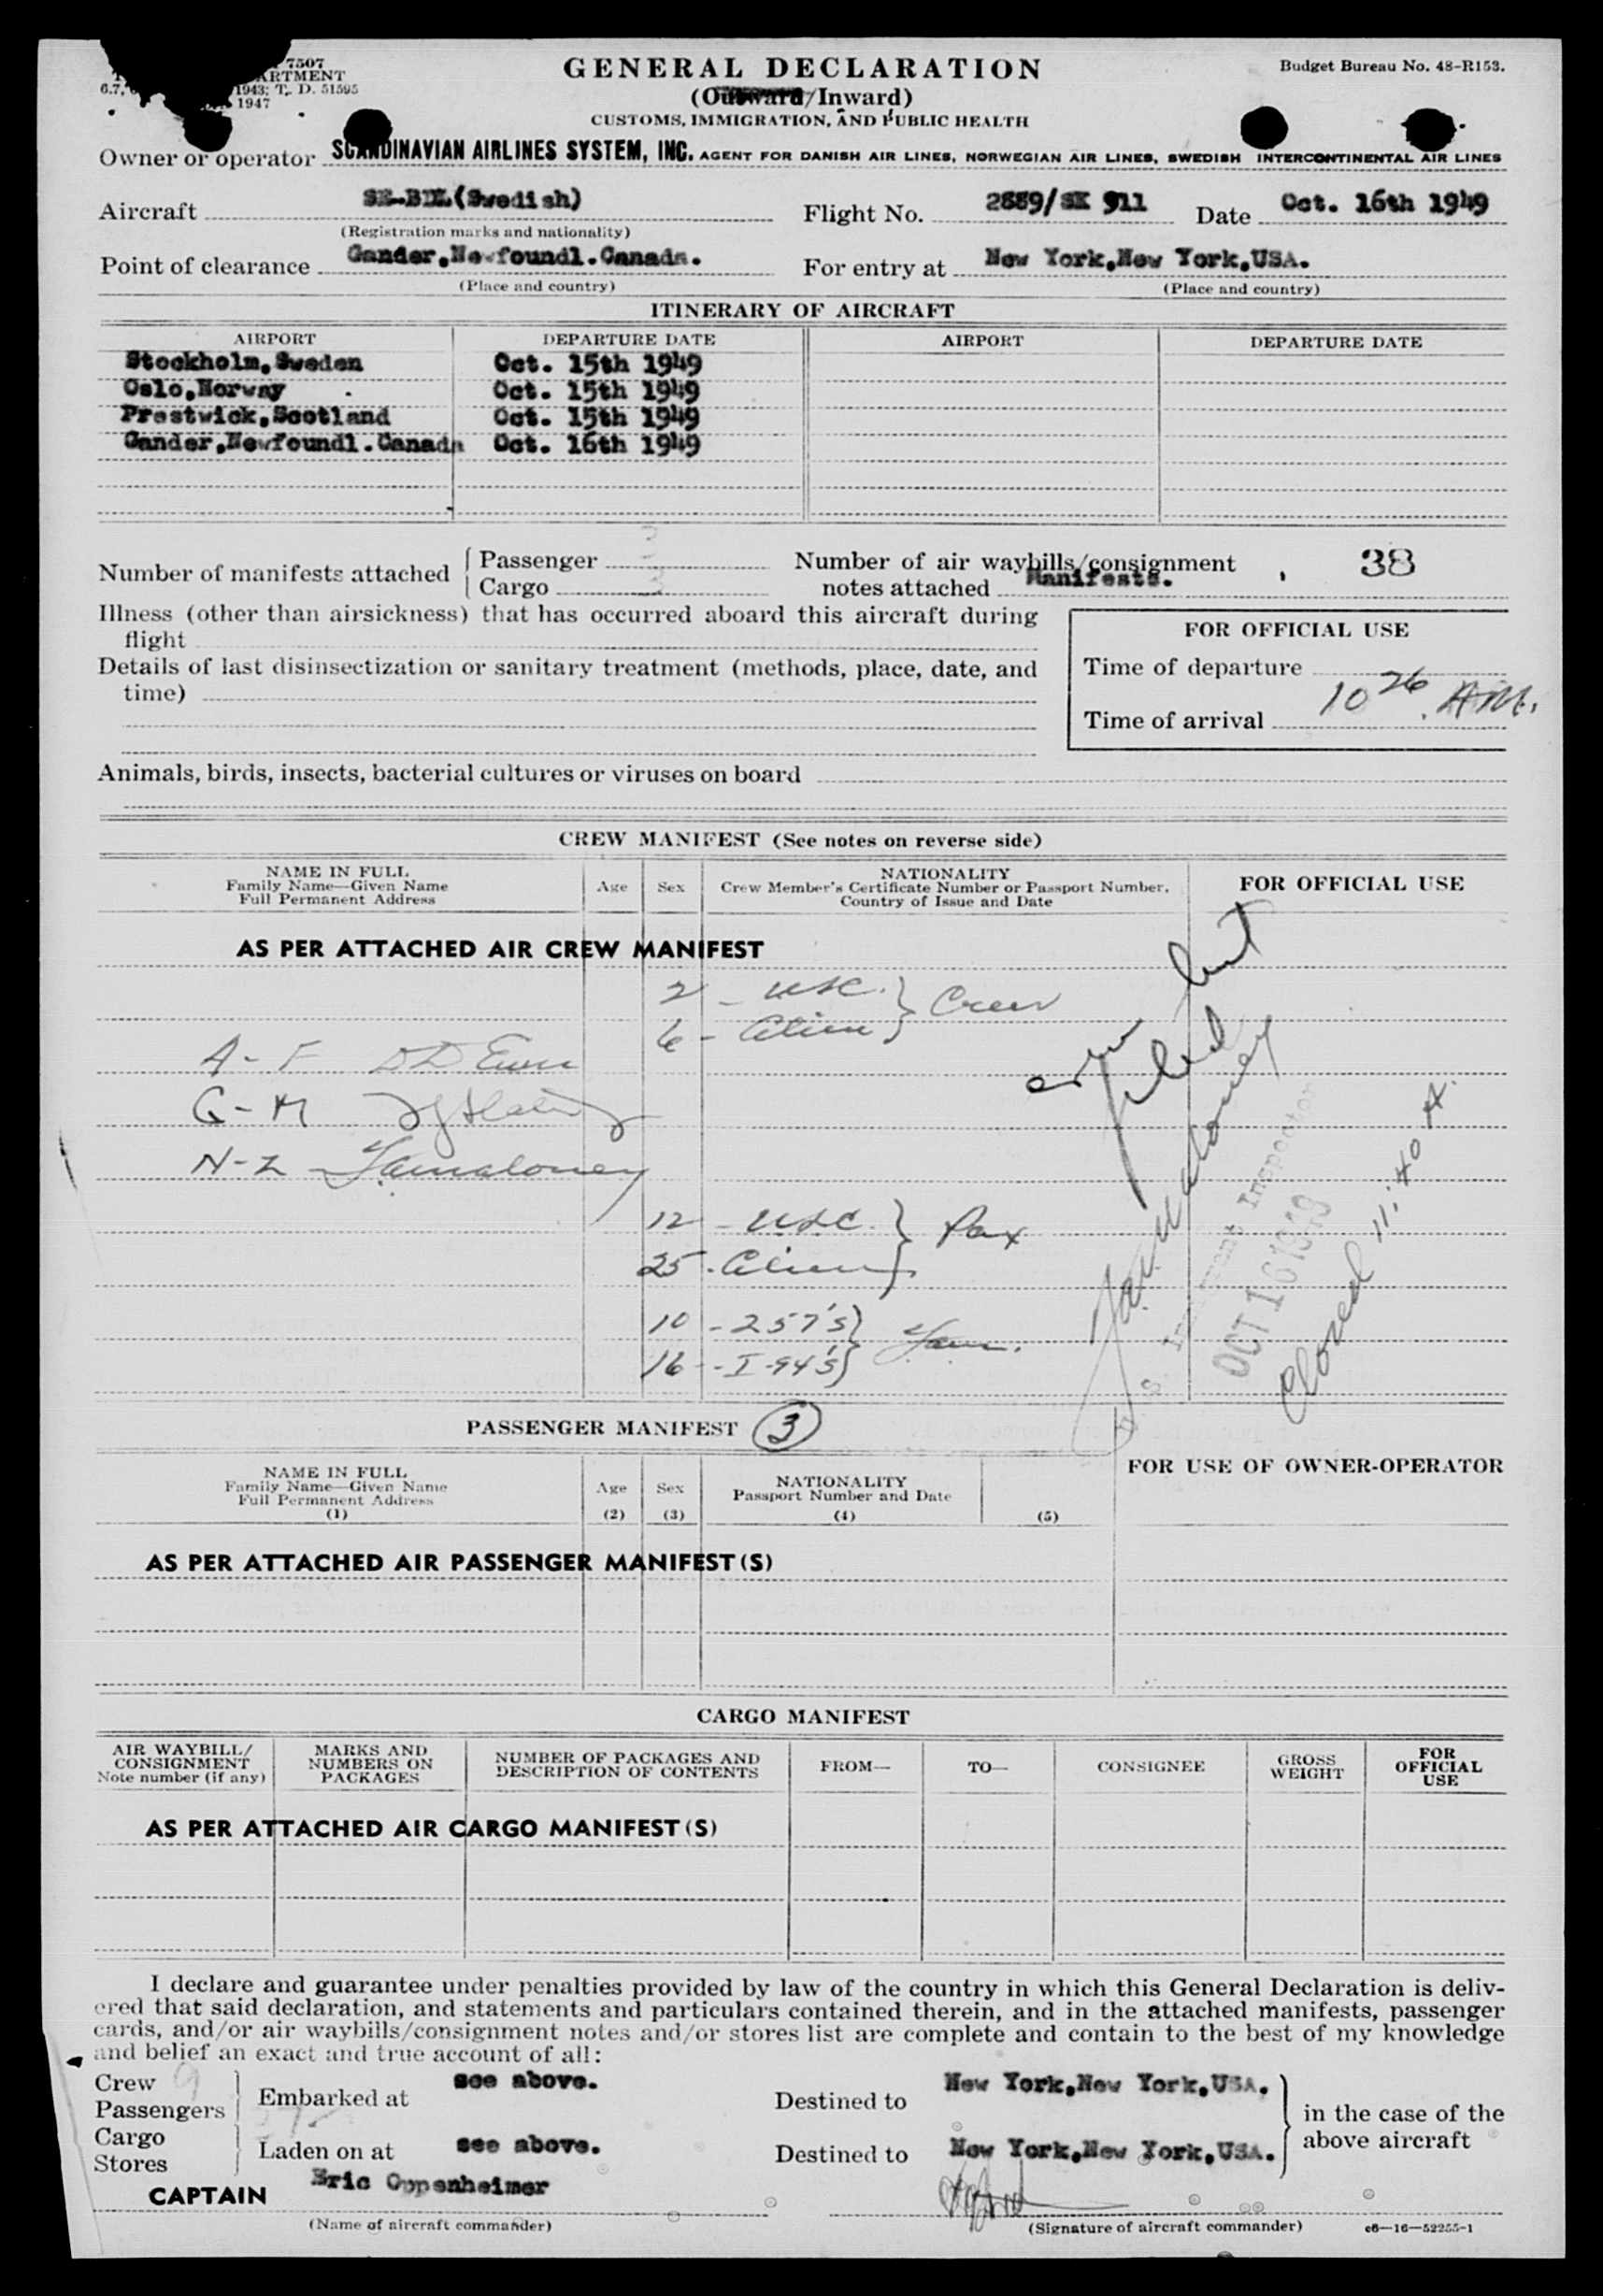 7507
ARTMENT
1943; T. D. 51595
1947
GENERAL DECLARATION
(Outward/Inward)
CUSTOMS, IMMIGRATION, AND PUBLIC HEALTH
Budget Bureau No. 48-R153.
Owner or operator SCANDINAVIAN AIRLINES SYSTEM, INC. AGENT FOR DANISH AIR LINES, NORWEGIAN AIR LINES, SWEDISH INTERCONTINENTAL AIR LINES
Aircraft (Swedish) Flight No. 2889/SK 911 Date Oct. 16th 1949
(Registration marks and nationality)
Point of clearance Gander,Newfoundl.Canada. For entry at New York,New York,USA.
(Place and country) (Place and country)
ITINERARY OF AIRCRAFT
AIRPORT DEPARTURE DATE AIRPORT DEPARTURE DATE
Stockholm,Sweden Oct. 15th 1949
Oslo,Norway Oct. 15th 1949
Prestwick,Scotland Oct. 15th 1949
Gander,Newfoundl.Canada Oct. 16th 1949
Number of manifests attached
Passenger 3
Cargo 3
Number of air waybills/consignment
notes attached Manifests. 38
Illness (other than airsickness) that has occurred aboard this aircraft during
flight
Details of last disinsectization or sanitary treatment (methods, place, date, and
time)
FOR OFFICIAL USE
Time of departure
Time of arrival 10 26 AM.
Animals, birds, insects, bacterial cultures or viruses on board
CREW MANIFEST (See notes on reverse side)
NAME IN FULL
Family Name—Given Name
Full Permanent Address
Age
Sex
NATIONALITY
Crew Member's Certificate Number or Passport Number,
Country of Issue and Date
FOR OFFICIAL USE
AS PER ATTACHED AIR CREW MANIFEST
2 - USC. } Crew
6 - Alien
A - F
G - M
N - Z
12 - USC. } Pax
25 - Alien
10 - 257's
16 - I-94's
U. S. Immigrant Inspector
OCT 16 1949
Closed 11:40 A.
PASSENGER MANIFEST 3
NAME IN FULL
Family Name—Given Name
Full Permanent Address
(1)
Age
(2)
Sex
(3)
NATIONALITY
Passport Number and Date
(4)
(5)
FOR USE OF OWNER-OPERATOR
AS PER ATTACHED AIR PASSENGER MANIFEST(S)
CARGO MANIFEST
AIR WAYBILL/
CONSIGNMENT
Note number (if any)
MARKS AND
NUMBERS ON
PACKAGES
NUMBER OF PACKAGES AND
DESCRIPTION OF CONTENTS
FROM—
TO—
CONSIGNEE
GROSS
WEIGHT
FOR
OFFICIAL
USE
AS PER ATTACHED AIR CARGO MANIFEST(S)
I declare and guarantee under penalties provided by law of the country in which this General Declaration is deliv-
ered that said declaration, and statements and particulars contained therein, and in the attached manifests, passenger
cards, and/or air waybills/consignment notes and/or stores list are complete and contain to the best of my knowledge
and belief an exact and true account of all:
Crew 9
Passengers
Embarked at see above. Destined to New York,New York,USA.
Cargo
Stores
Laden on at see above. Destined to New York,New York,USA.
in the case of the
above aircraft
CAPTAIN Eric Oppenheimer
(Name of aircraft commander) (Signature of aircraft commander) c6—16—52255-1